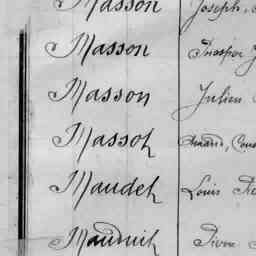 Masson Joseph,
Masson Prosper J
Masson Julien
Massot Amand, Cons
Maudet Louis Pie
Mauduit Pierre